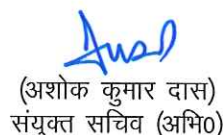 (अशोक कुमार दास)
संयुक्त सचिव (अभि0)